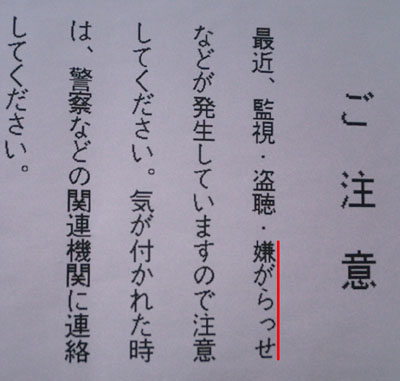 ご注意
最近、監視・盗聴・嫌がらっせ
などが発生していますので注意
してください。気が付かれた時
は、警察などの関連機関に連絡
してください。